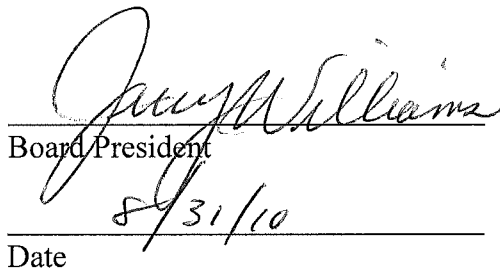 Williams
Board President
8/31/10
Date